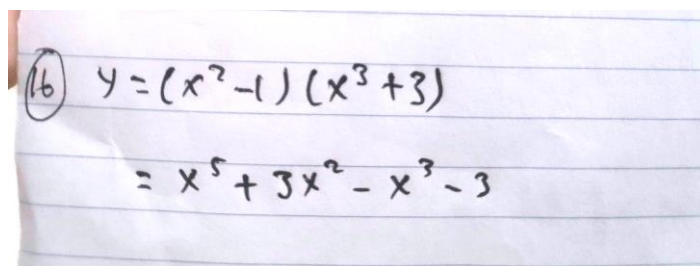 16 y = (x² - 1) (x³ + 3)
= x⁵ + 3x² - x³ - 3